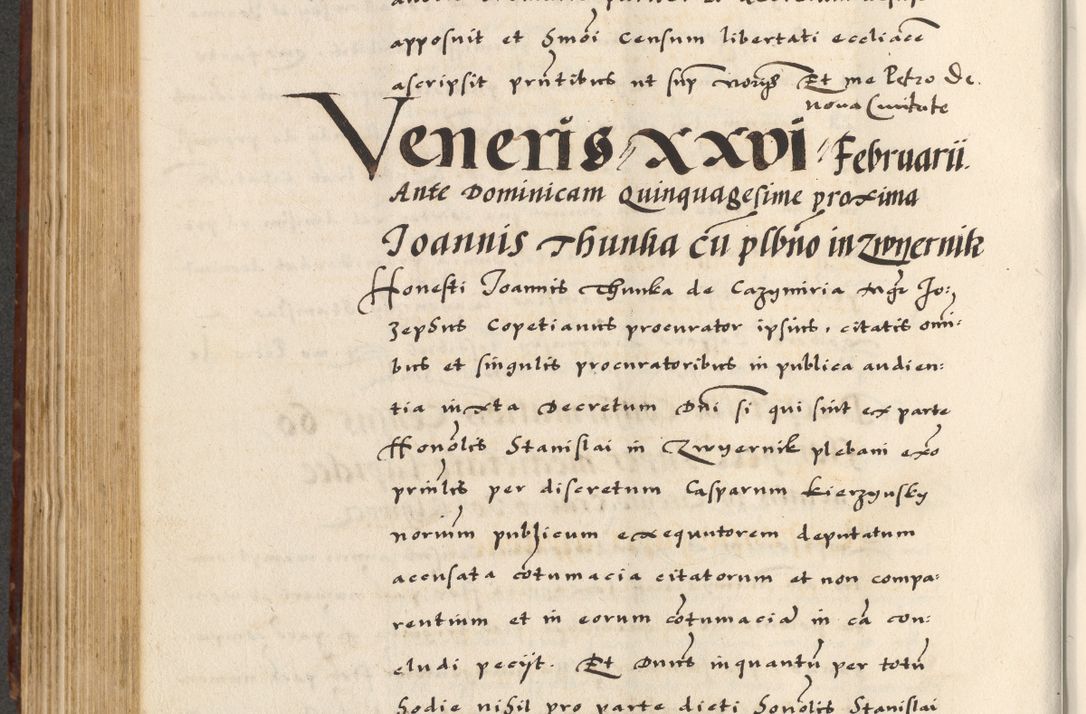 apposuit et hmoi censum libertati eccliace
ascripsit prntibus ut sup Et me Petro de
nova Civitate
Veneris XXVI Februarii
Ante Dominicam Quinquagesime proxima
Joannis Thunka cu plbno in Zwyernik
Honesti Joannis Thunka de Cazymiria Mgr Jo:
zephus Copetianus procurator ipsius, citatis omi:
bus et singulis procuratoribus in publica audien:
tia iuxta Decretum Dni si qui sint ex parte
Honolis Stanislai in Zwyernik plebani exo
prinlis per discretum Casparum Kierzynsky
norium publicum exequutorem deputatum
accusata cotumacia citatorum et non compa:
rentium et in eorum cotumacia in ca con:
cludi peciit. Et Dnus inquantu per totu
hodie nihil pro parte dicti honolis Stanislai